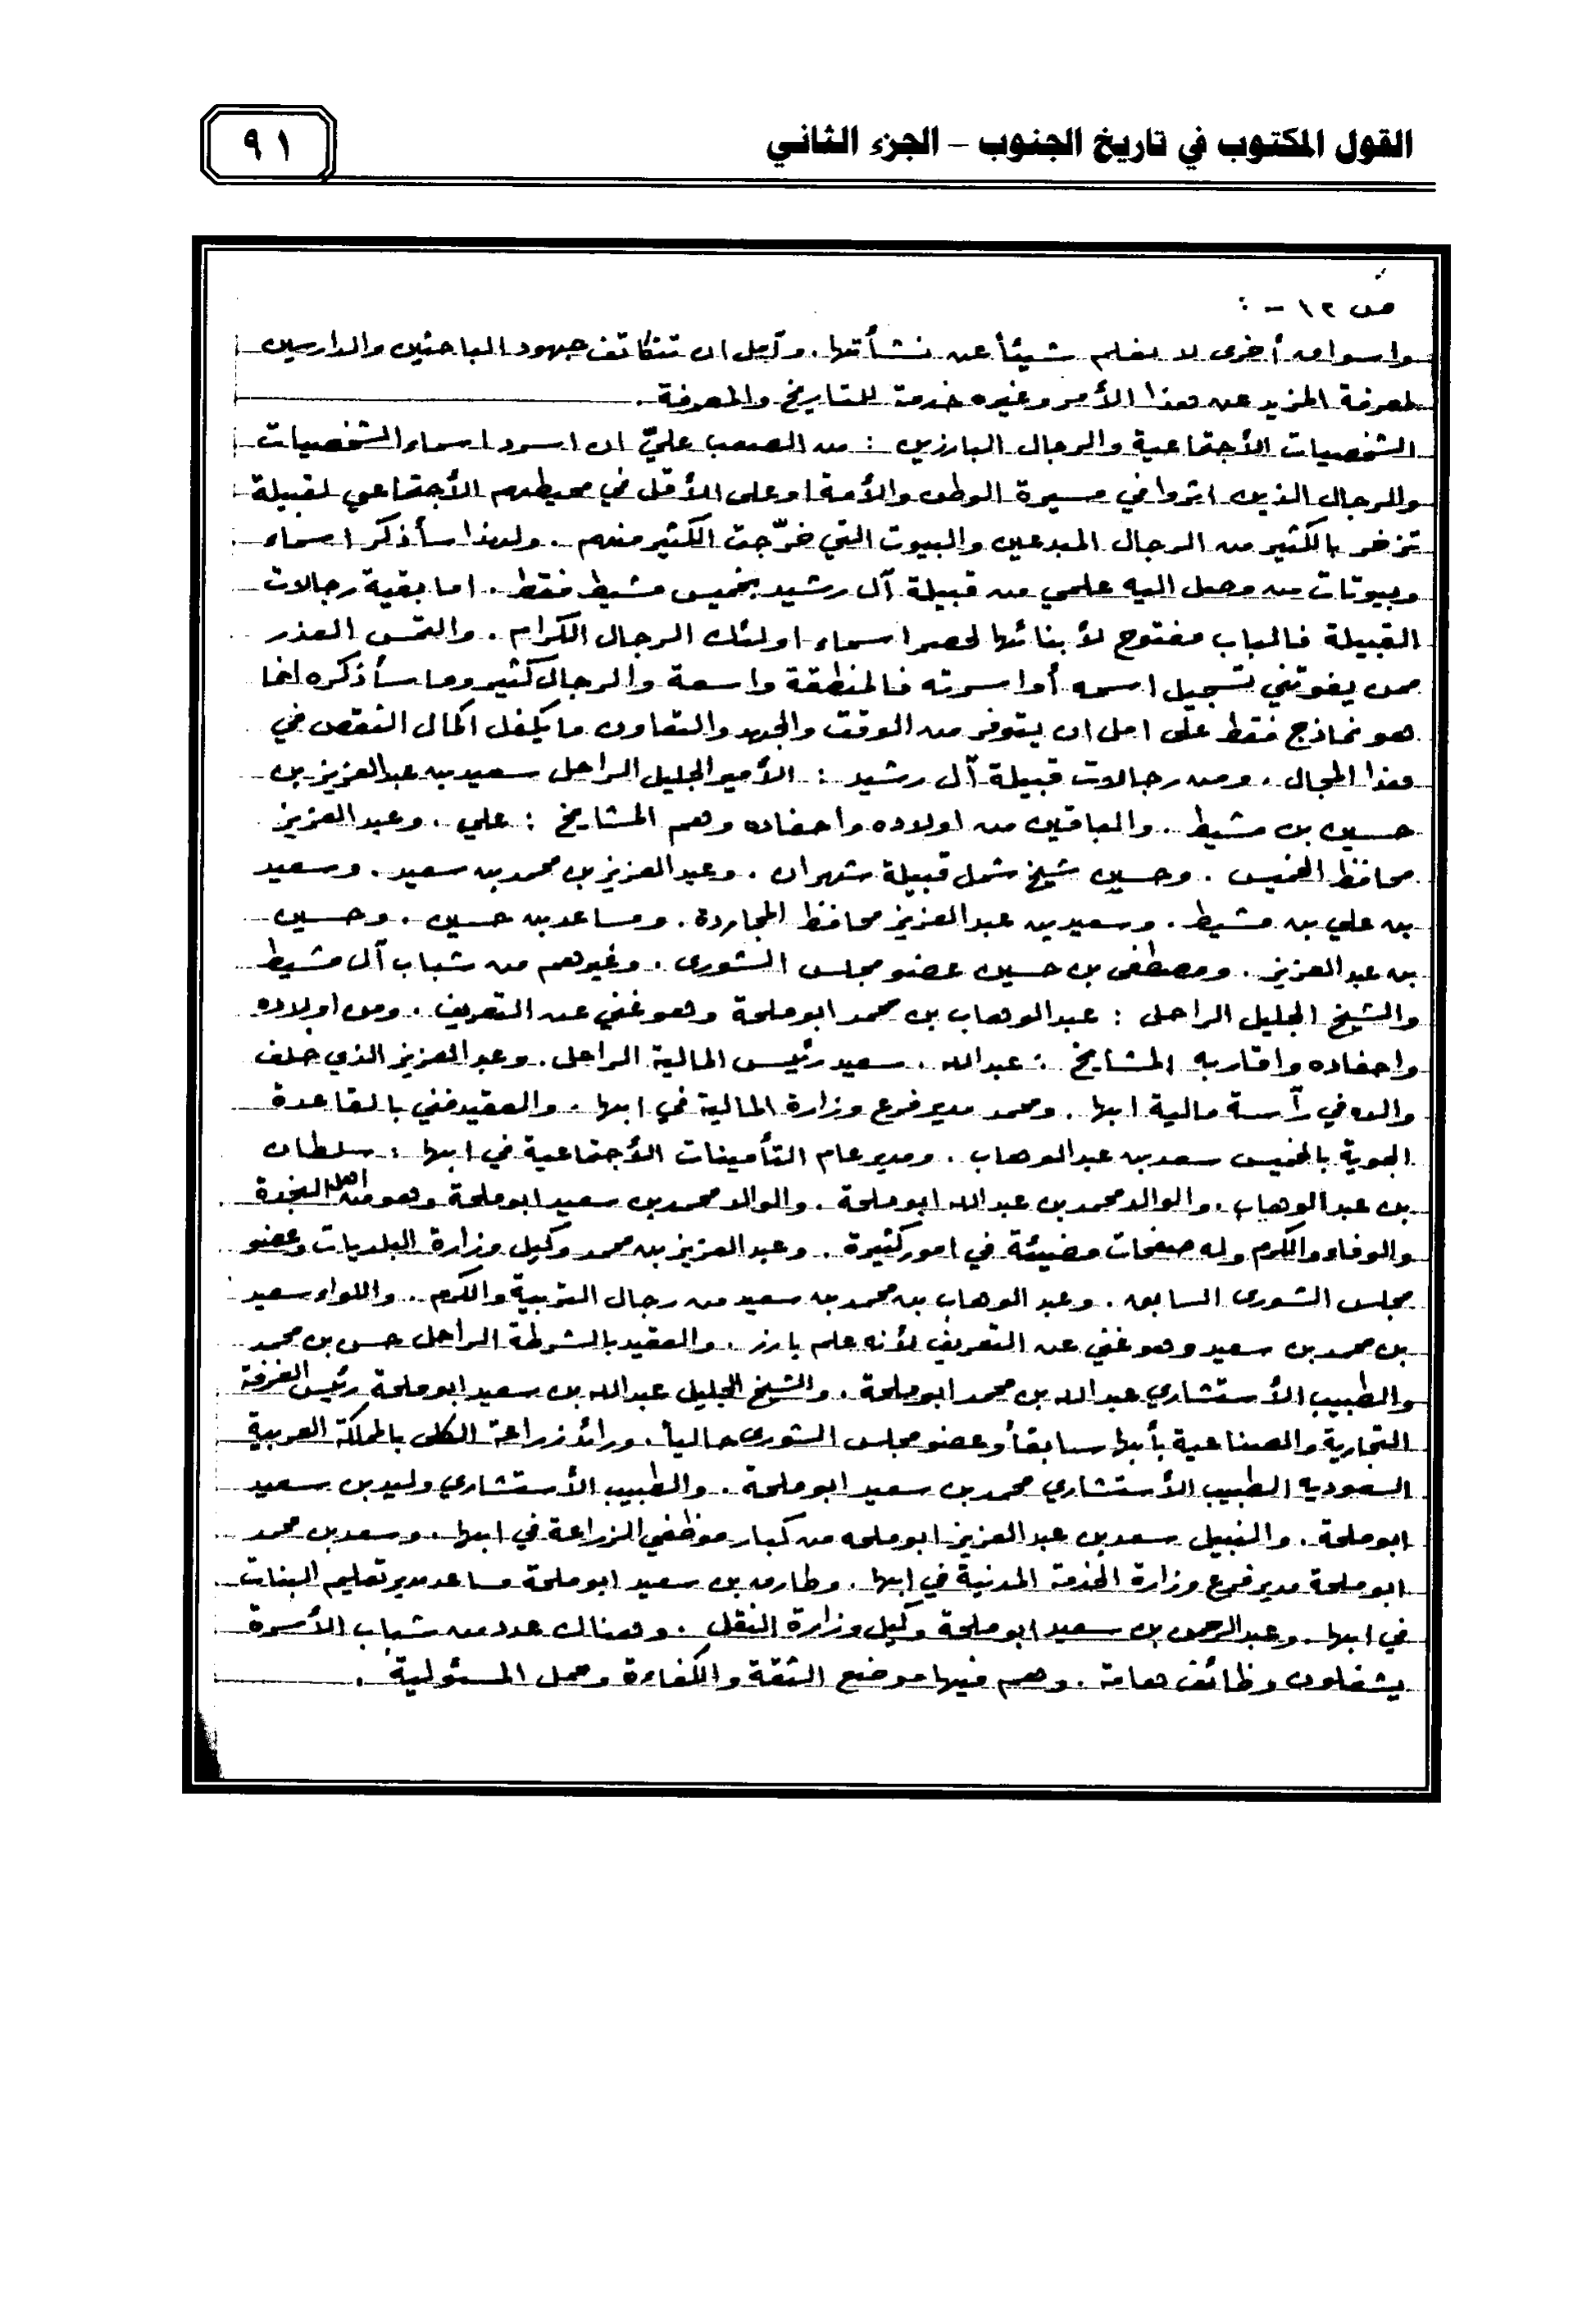 القول المكتوب في تاريخ الجنوب – الجزء الثاني
٩١
ص ١٢ - :
واسواق أخرى لا نعلم شيئاً عن نشأتها. وآمل ان تتكاتف جهود الباحثين والدارسين
لمعرفة المزيد عن هذا الأمر وغيره خدمة للتاريخ والمعرفة .
الشخصيات الأجتماعية والرجال البارزين : من الصعب عليّ ان اسرد اسماء الشخصيات
والرجال الذين اثروا في مسيرة الوطن والأمة او على الأقل في محيطهم الأجتماعي لقبيلة
تزخر بالكثير من الرجال المبدعين والبيوت التي خرّجت الكثير منهم . ولهذا سأذكر اسماء
وبيوتات من وصل اليه علمي من قبيلة آل رشيد بخميس مشيط فقط . اما بقية رجالات
القبيلة فالباب مفتوح لأبنائها لحصر اسماء اولئك الرجال الكرام . والتمس العذر
ممن يفوتني تسجيل اسمه أو اسرته فالمنطقة واسعة والرجال كثير وما سأذكره انما
هو نماذج فقط على امل ان يتوفر من الوقت والجهد والتعاون ما يكفل اكمال النقص في
هذا المجال . ومن رجالات قبيلة آل رشيد : الأمير الجليل الراحل سعيد بن عبدالعزيز بن
حسين بن مشيط . والباقين من اولاده واحفاده وهم المشايخ : علي . وعبدالعزيز
محافظ الخميس . وحسين شيخ شمل قبيلة شهران . وعبدالعزيز بن محمد بن سعيد . وسعيد
بن علي بن مشيط . وسعيد بن عبدالعزيز محافظ المجاردة . ومساعد بن حسين . وحسين
بن عبدالعزيز . ومصطفى بن حسين عضو مجلس الشورى . وغيرهم من شباب آل مشيط
والشيخ الجليل الراحل : عبدالوهاب بن محمد ابوملحة وهو غني عن التعريف . ومن اولاده
واحفاده واقاربه المشايخ : عبدالله . سعيد رئيس المالية الراحل . وعبدالعزيز الذي خلف
والده في رآسة مالية ابها . ومحمد مدير فرع وزارة المالية في ابها . والعقيد فني بالقاعدة
الجوية بالخميس سعد بن عبدالوهاب . ومدير عام التأمينات الأجتماعية في ابها : سلطان
بن عبدالوهاب . والوالد محمد بن عبدالله ابوملحة . والوالد محمد بن سعيد ابوملحة وهو من اهل النجدة
والوفاء والكرم وله صفحات مضيئة في امور كثيرة . وعبدالعزيز بن محمد وكيل وزارة البلديات وعضو
مجلس الشورى السابق . وعبدالوهاب بن محمد بن سعيد من رجال التربية والكرم . واللواء سعيد
بن محمد بن سعيد وهو غني عن التعريف لأنه علم بارز . والعقيد بالشرطة الراحل حسن بن محمد
والطبيب الأستشاري عبدالله بن محمد ابوملحة . والشيخ الجليل عبدالله بن سعيد ابوملحة رئيس الغرفة
التجارية والصناعية بأبها سابقاً وعضو مجلس الشورى حالياً . ورائد زراعة الكلى بالمملكة العربية
السعودية الطبيب الأستشاري محمد بن سعيد ابوملحة . والطبيب الأستشاري وليد بن سعيد
ابوملحة . والنبيل سعد بن عبدالعزيز ابوملحه من كبار موظفي الزراعة في ابها . وسعد بن محمد
ابوملحة مدير فرع وزارة الخدمة المدنية في ابها . وطارق بن سعيد ابوملحة مساعد مدير تعليم البنات
في ابها . وعبدالرحمن بن سعيد ابوملحة وكيل وزارة النقل . وهناك عدد من شباب الأسرة
يشغلون وظائف هامة . وهم فيها موضع الثقة والكفاءة ومحل المسئولية .